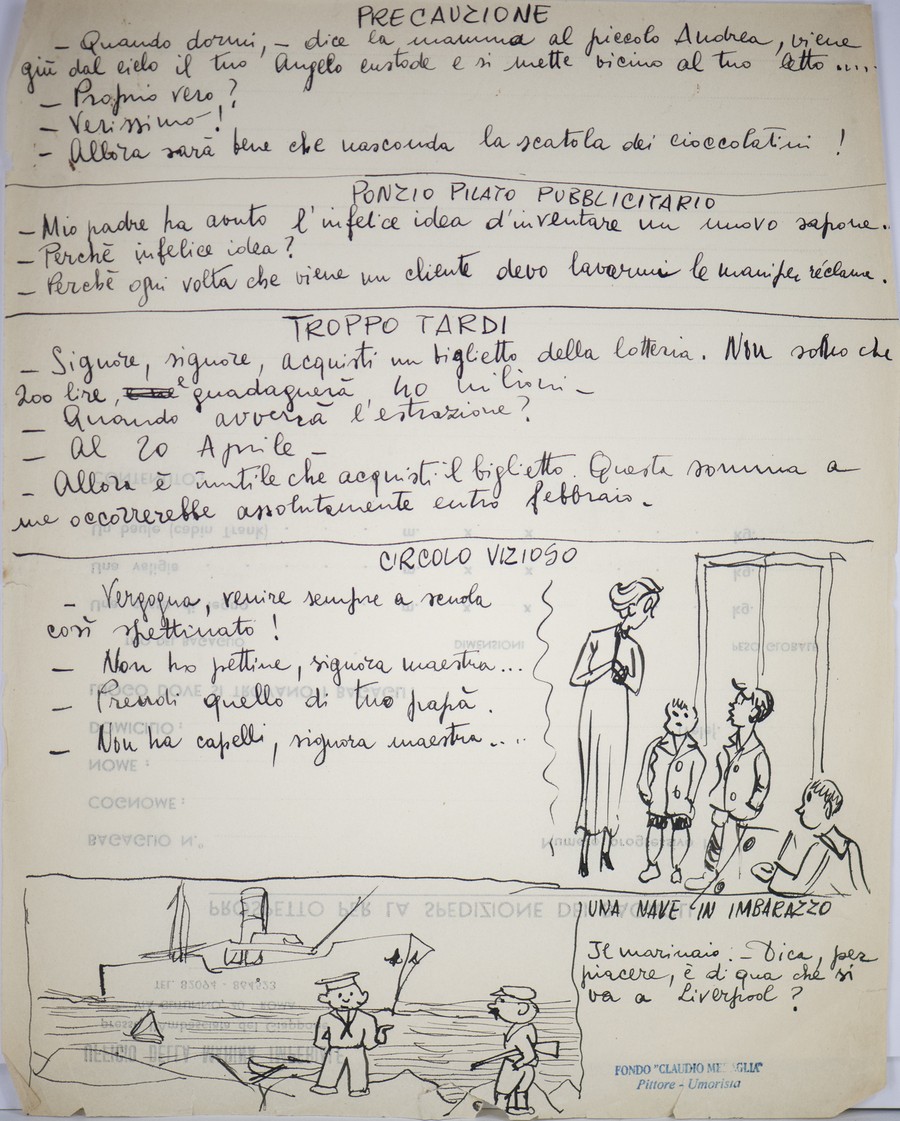 PRECAUZIONE
- Quando dormi, - dice la mamma al piccolo Andrea, viene
giù dal cielo il tuo Angelo custode e si mette vicino al tuo letto.....
- Proprio vero?
- Verissimo!
- Allora sarà bene che nasconda la scatola dei cioccolatini !
PONZIO PILATO PUBBLICITARIO
- Mio padre ha avuto l'infelice idea d'inventare un nuovo sapone..
- Perchè infelice idea?
- Perchè ogni volta che viene un cliente devo lavarmi le mani per réclame.
TROPPO TARDI
- Signore, signore, acquisti un biglietto della lotteria. Non sono che
200 lire, e guadagnerà 40 milioni -
- Quando avverrà l'estrazione?
- Al 20 Aprile -
- Allora è inutile che acquisti il biglietto. Questa somma a
me occorrerebbe assolutamente entro febbraio.
CIRCOLO VIZIOSO
- Vergogna, venire sempre a scuola
così spettinato !
- Non ho pettine, signora maestra...
- Prendi quello di tuo papà.
- Non ha capelli, signora maestra....
UNA NAVE IN IMBARAZZO
Il marinaio: - Dica, per
piacere, è di qua che si
va a Liverpool ?
FONDO "CLAUDIO MEDAGLIA"
Pittore - Umorista
CONTENUTO:
Un baule (cabin Trunk) m. x x kg.
Una valigia m. x x kg.
kg.
DIMENSIONI
PESO GLOBALE
LUOGO DOVE SI TROVANO I BAGAGLI
DOMICILIO :
NOME :
COGNOME :
BAGAGLIO N.°
Numero progressivo
PROSPETTO PER LA SPEDIZIONE DEI BAGAGLI
TEL. 82094 - 864523
presso Ambasciata del Giappone